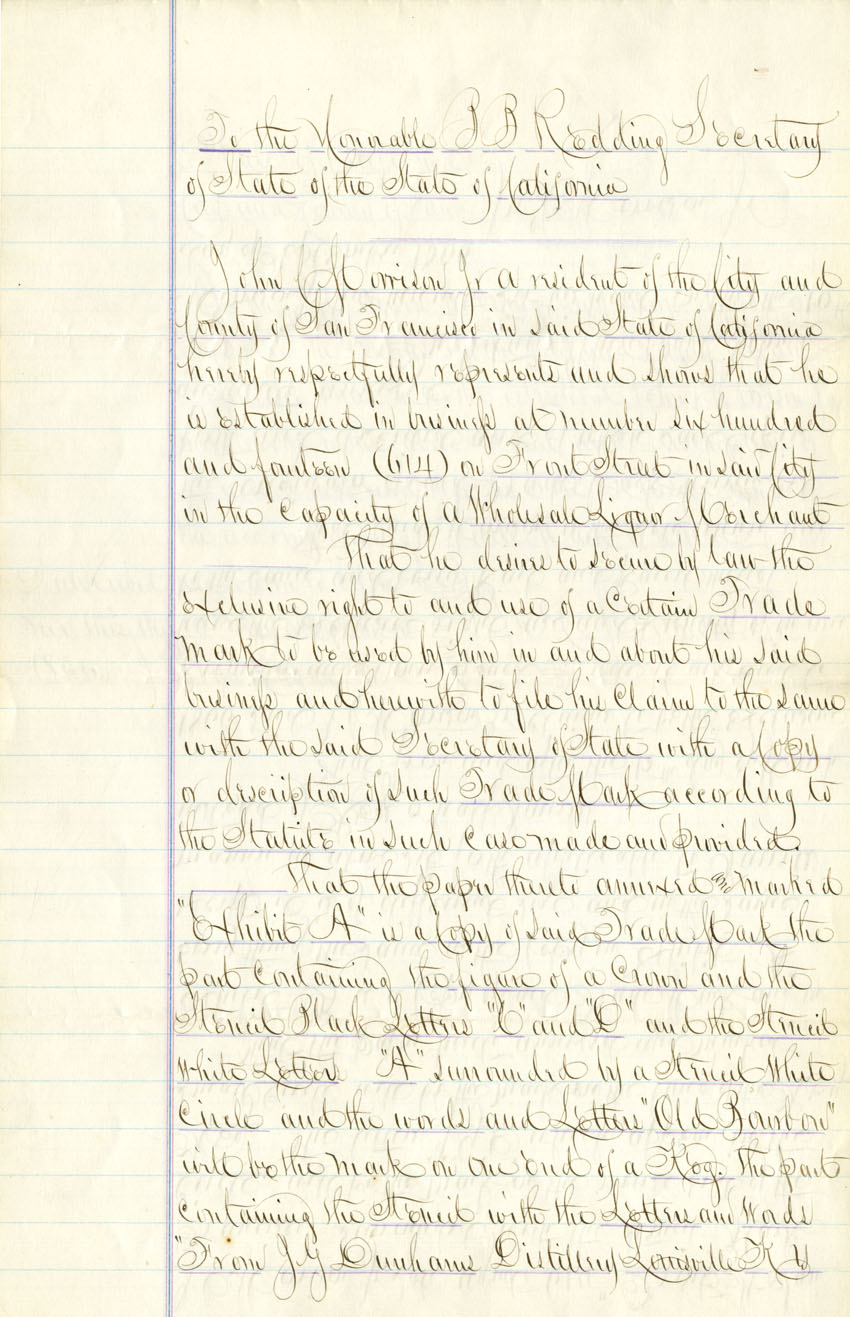 To the Honorable B B Redding Secretary
of State of the State of California
John C Morrison Jr a resident of the City and
County of San Francisco in said State of California
hereby respectfully represents and shows that he
is established in business at number six hundred
and fourteen (614) on Front Street in said City
in the capacity of a Wholesale Liquor Merchant
That he desires to secure by law the
exclusive right to and use of a Certain Trade
mark to be used by him in and about his said
business and herewith to file his Claim to the same
with the said Secretary of State with a Copy
or description of such Trade Mark according to
the Statute in such case made and provided.
That the paper thereto annexed and marked
"Exhibit A" is a Copy of said Trade Mark the
part containing the figure of a Crown and the
Stencil Black Letters "C" and "D" and the Stencil
White Letter "A" surrounded by a Stencil White
Circle and the words and Letters "Old Bourbon"
will be the mark on one end of a Keg. The part
containing the Stencil with the Letters and Words
"From J G Dunhams Distillery Louisville Ky